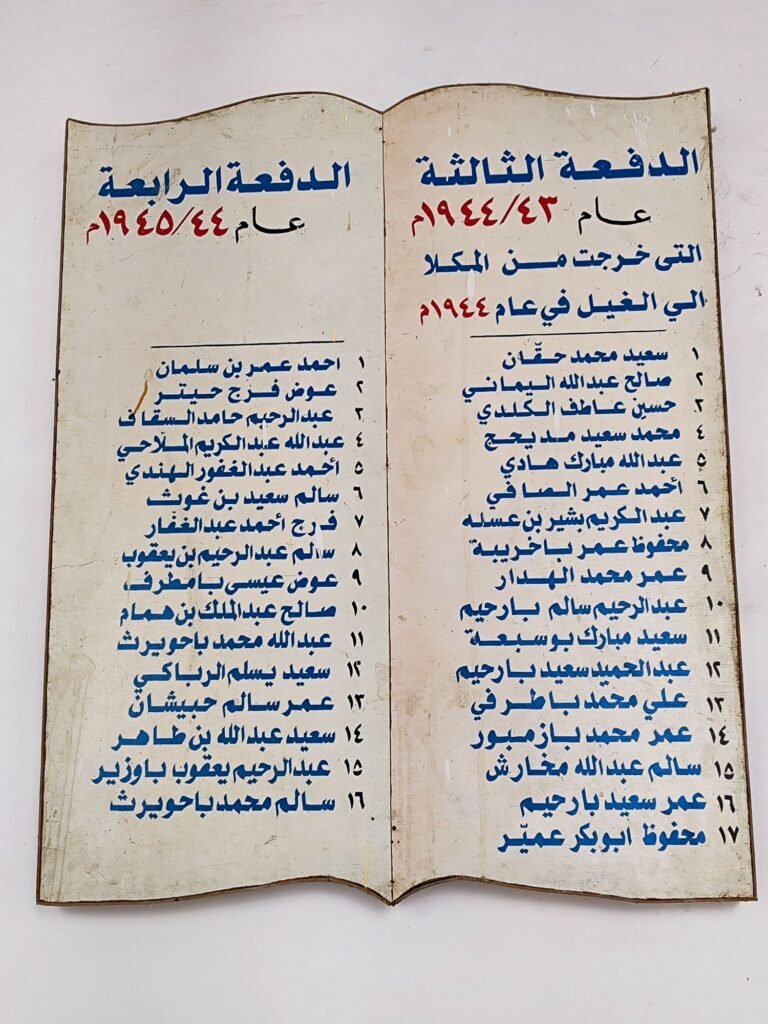 الدفعة الثالثة
عام ١٩٤٤/٤٣م
التى خرجت من المكلا
الي الغيل في عام ١٩٤٤م
١ سعيد محمد حقّان
٢ صالح عبدالله اليماني
٣ حسين عاطف الكلدي
٤ محمد سعيد مديحج
٥ عبدالله مبارك هادي
٦ أحمد عمر الصافي
٧ عبد الكريم بشير بن عسله
٨ محفوظ عمر باخريبة
٩ عمر محمد الهدار
١٠ عبدالرحيم سالم بارحيم
١١ سعيد مبارك بوسبعة
١٢ عبدالحميد سعيد بارحيم
١٣ علي محمد باطرفي
١٤ عمر محمد بازمبور
١٥ سالم عبدالله مخارش
١٦ عمر سعيد بارحيم
١٧ محفوظ ابوبكر عميّر
الدفعة الرابعة
عام ١٩٤٥/٤٤م
١ احمد عمر بن سلمان
٢ عوض فرج حيتر
٣ عبدالرحيم حامد السقاف
٤ عبدالله عبدالكريم الملّاحي
٥ أحمد عبدالغفور الهندي
٦ سالم سعيد بن غوث
٧ فرج أحمد عبدالغفار
٨ سالم عبدالرحيم بن يعقوب
٩ عوض عيسى بامطرف
١٠ صالح عبدالملك بن همام
١١ عبدالله محمد باحويرث
١٢ سعيد يسلم الرباكي
١٣ عمر سالم حبيشان
١٤ سعيد عبدالله بن طاهر
١٥ عبدالرحيم يعقوب باوزير
١٦ سالم محمد باحويرث